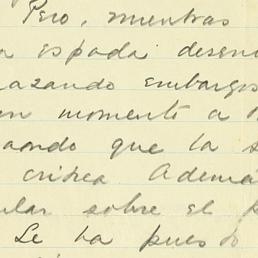 Pero, mientras
a espada desen
azando embargos
en momento a
ando que la s
critica Ademá
ular sobre el p
Se ha puesto